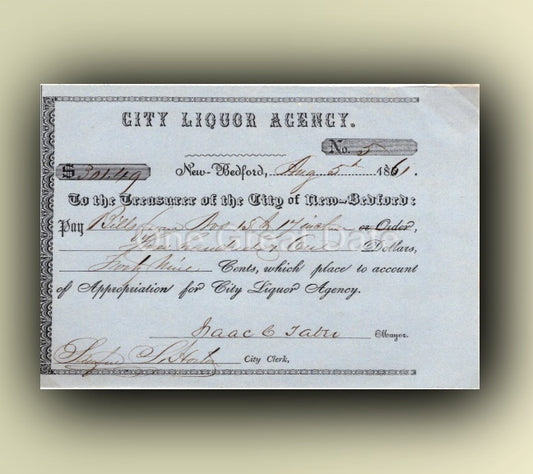 CITY LIQUOR AGENCY.
No. 5
$ 301.49 New-Bedford, Aug 5th 1861.
To the Treasurer of the City of New-Bedford:
Pay Bills from No 15 to 17 incl or Order,
Three hundred one Dollars,
Forty Nine Cents, which place to account
of Appropriation for City Liquor Agency.
Isaac C Taber Mayor.
City Clerk,